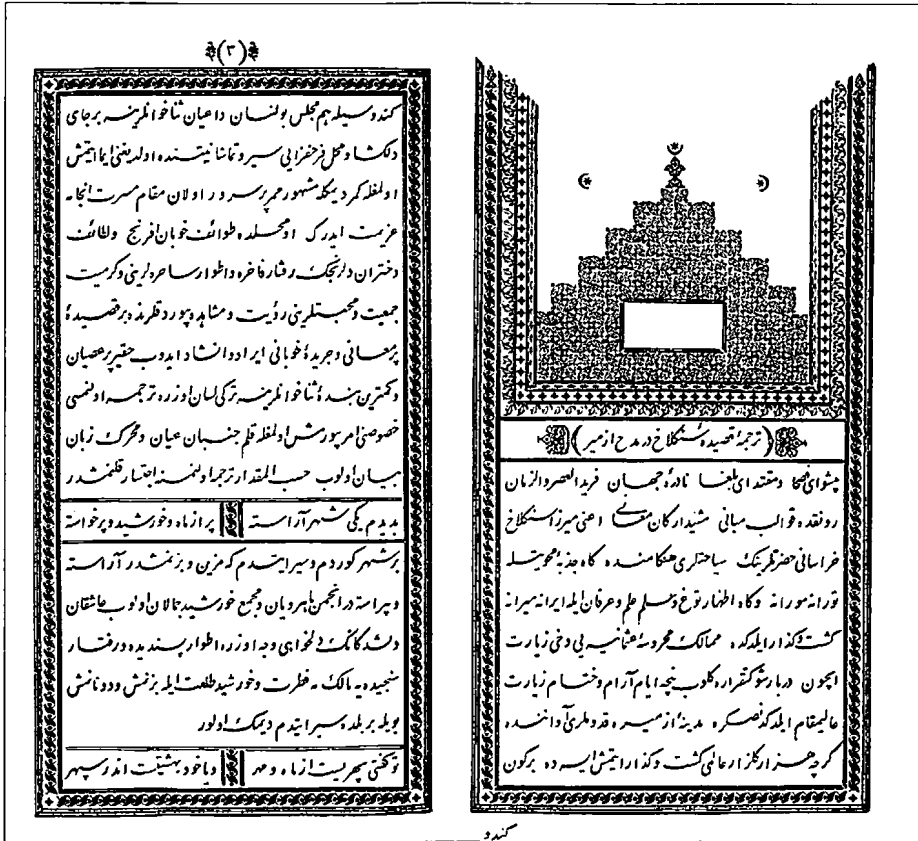 (ترجمهٔ قصیدهٔ سنكلاخ در مدح ازمیر)
پیشوای فصحا ومقتدای بلغا نادرهٔ جهان فرید العصر والزمان
رونقده قوالب مبانی مشید ارکان معانی اعنی میرزا سنكلاخ
خراسانی حضرتلرینك سیاحتلری هنکامنده کاه جذبهٔ
تورانه مورانه وکاه اظهار علم وعرفان ایله ایرانه میرانه
کشت وکذار ایلدکده ممالك محروسهٔ عثمانیه یی دخی زیارت
ایچون دربار کلوب نیچه ایام آرام وختام زیارت
عالیمقام ایلدکدنصکره مدینهٔ ازمیره قدوملری آواننده
کرچه هزار کلزار عالمی کشت وکذار ایتمش ایسه ده برکون
کندو
(۳)
کندوسیله هم مجلس بولنان داعیان ثناخوانلرینه برجای
دلکشا ومحل فرحفزایی سیر وتماشا نیتنده اولدیغنی ایما ایتمش
اولمغله کمر دیمکله مشهور ممر پرسرور اولان مقام مسرت انجا۔
عزیمت ایدرك اومحلده طوائف خوبان افرنج ولطائف
دختران دلرنجك رفتار فاخره واطوار ساحره لرینی وکرمیت
جمعیت ومحبتلرینی رؤیت ومشاهده بیوردقلرنده برقصیدهٔ
پرمعانی وجریدهٔ خوبانی ایراد وانشاد ایدوب حقیر پرعصیان
وکمترین بندهٔ ثناخوانلرینه ترکی لسان اوزره ترجمه اولنمسی
خصوصنی امر بیورمش اولمغله قلم جنبان عیان ومحرك زبان
بیان اولوب حسب المقدار ترجمه اولنمسنه اجتسار قلنمشدر
بدیدم یکی شهر آراسته پر از ماه وخورشید وپرخواسته
برشهر کوردم وسیر ایتدم که مزین وبزنمشدر آراسته
وپیراسته در انجمن ماهرویان ومجمع خورشید جمالان اولوب عاشقان
دلشدکانك دلخواهی وجه اوزره اطوار پسندیده ورفتار
سنجیده یه مالك مه فطرت وخورشید طلعت ایله بزنمش ودونانمش
بویله بربلده سیر ایتدم دیمك اولور
توکفتی سپهریست از ماه ومهر ویا خود بهشتیست اندر سپهر